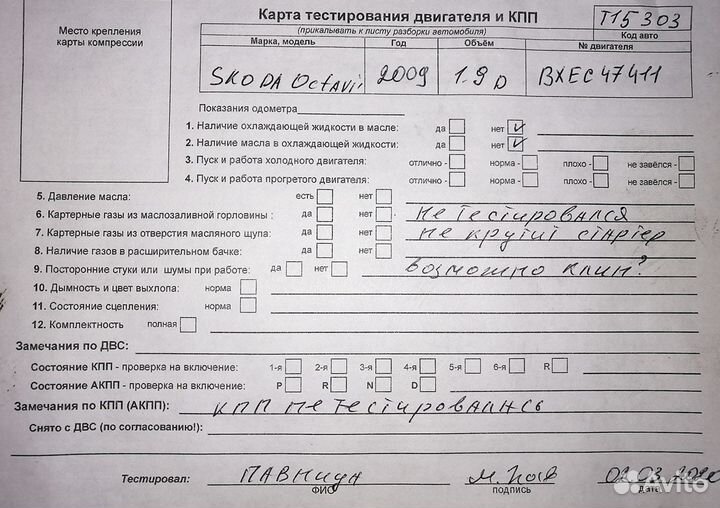 Место крепления
карты компрессии
Карта тестирования двигателя и КПП
(прикалывать к листу разборки автомобиля)
T15303
Код авто
Марка, модель Год Объём № двигателя
SKODA Octavi 2009 1.9 D BXEC47411
Показания одометра
1. Наличие охлаждающей жидкости в масле: да нет ✓
2. Наличие масла в охлаждающей жидкости: да нет ✓
3. Пуск и работа холодного двигателя: отлично - норма - плохо - не завёлся -
4. Пуск и работа прогретого двигателя: отлично - норма - плохо - не завёлся -
5. Давление масла: есть нет
6. Картерные газы из маслозаливной горловины : да нет не тестировался
7. Картерные газы из отверстия масляного щупа: да нет не крутит стартер
8. Наличие газов в расширительном бачке: да нет
9. Посторонние стуки или шумы при работе: да нет возможно клин?
10. Дымность и цвет выхлопа: норма
11. Состояние сцепления: норма
12. Комплектность полная
Замечания по ДВС:
Состояние КПП - проверка на включение: 1-я 2-я 3-я 4-я 5-я 6-я R
Состояние АКПП - проверка на включение: P R N D
Замечания по КПП (АКПП): КПП не тестировались
Снято с ДВС (по согласованию!):
Тестировал:
ФИО подпись дата
Avito